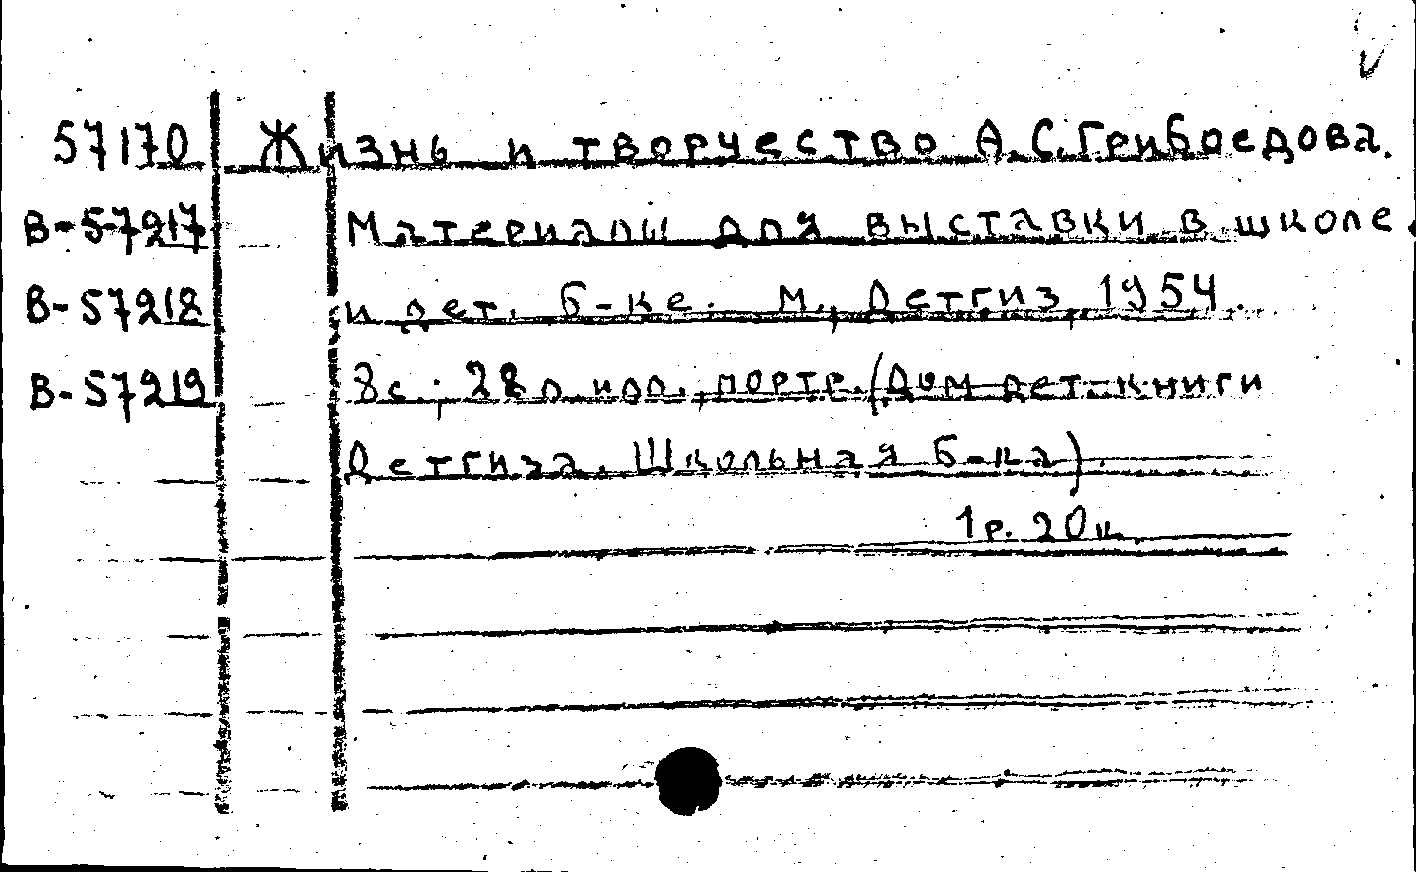 57170 Жизнь и творчество А.С.Грибоедова.
В-57217 Материалы для выставки в школе
В-57218 и дет. б-ке. М., Детгиз, 1954.
В-57219 8с.; 28л. илл., портр. (Дом дет. книги
Детгиза. Школьная б-ка).
1р. 20к.